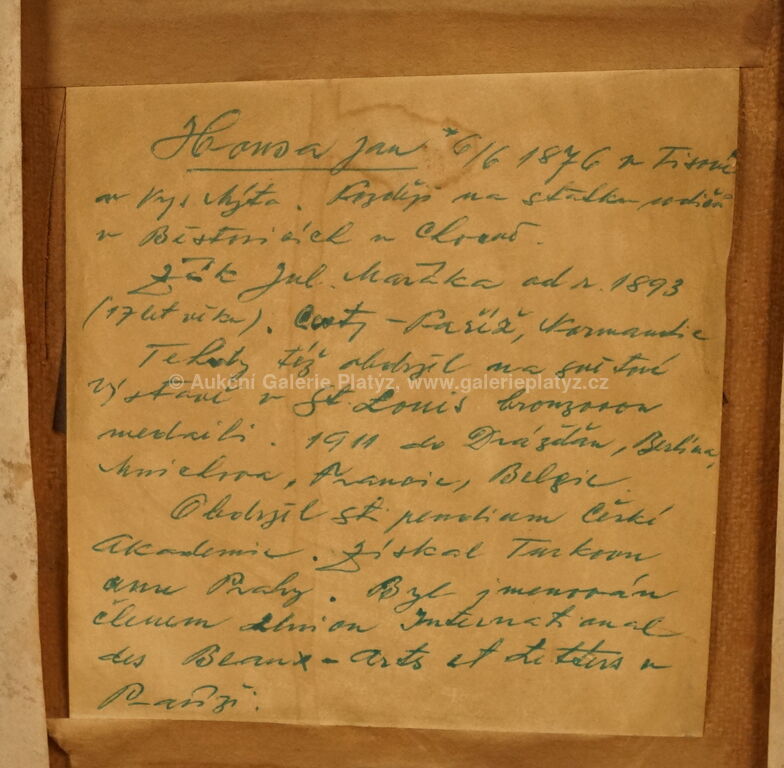 Honsa Jan *6/6 1876 v Tisové
u Vys Mýta. Později na statku rodičů
v Běstovicích u Chocně.
Žák Jul. Mařáka od r. 1893
(17 let věku). Cesty - Paříž, Normandie
Tehdy též obdržel na světové
© Aukční Galerie Platýz, www.galerieplatyz.cz
výstavě v St. Louis bronzovou
medaili. 1911 do Drážďan, Berlína,
Mnichova, Francie, Belgie.
Obdržel stipendium České
Akademie. Získal Turkovu
cenu Prahy. Byl jmenován
členem Union International
des Beaux-Arts et Letters v
Paříži.